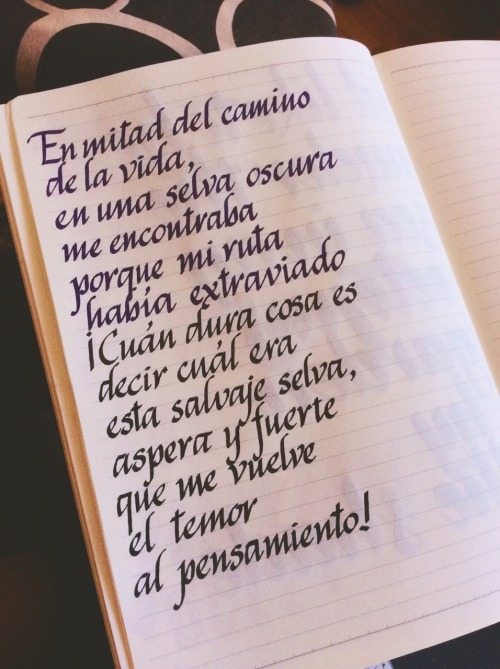 En mitad del camino
de la vida,
en una selva oscura
me encontraba
porque mi ruta
había extraviado
¡Cuán dura cosa es
decir cuál era
esta salvaje selva,
aspera y fuerte
que me vuelve
el temor
al pensamiento!